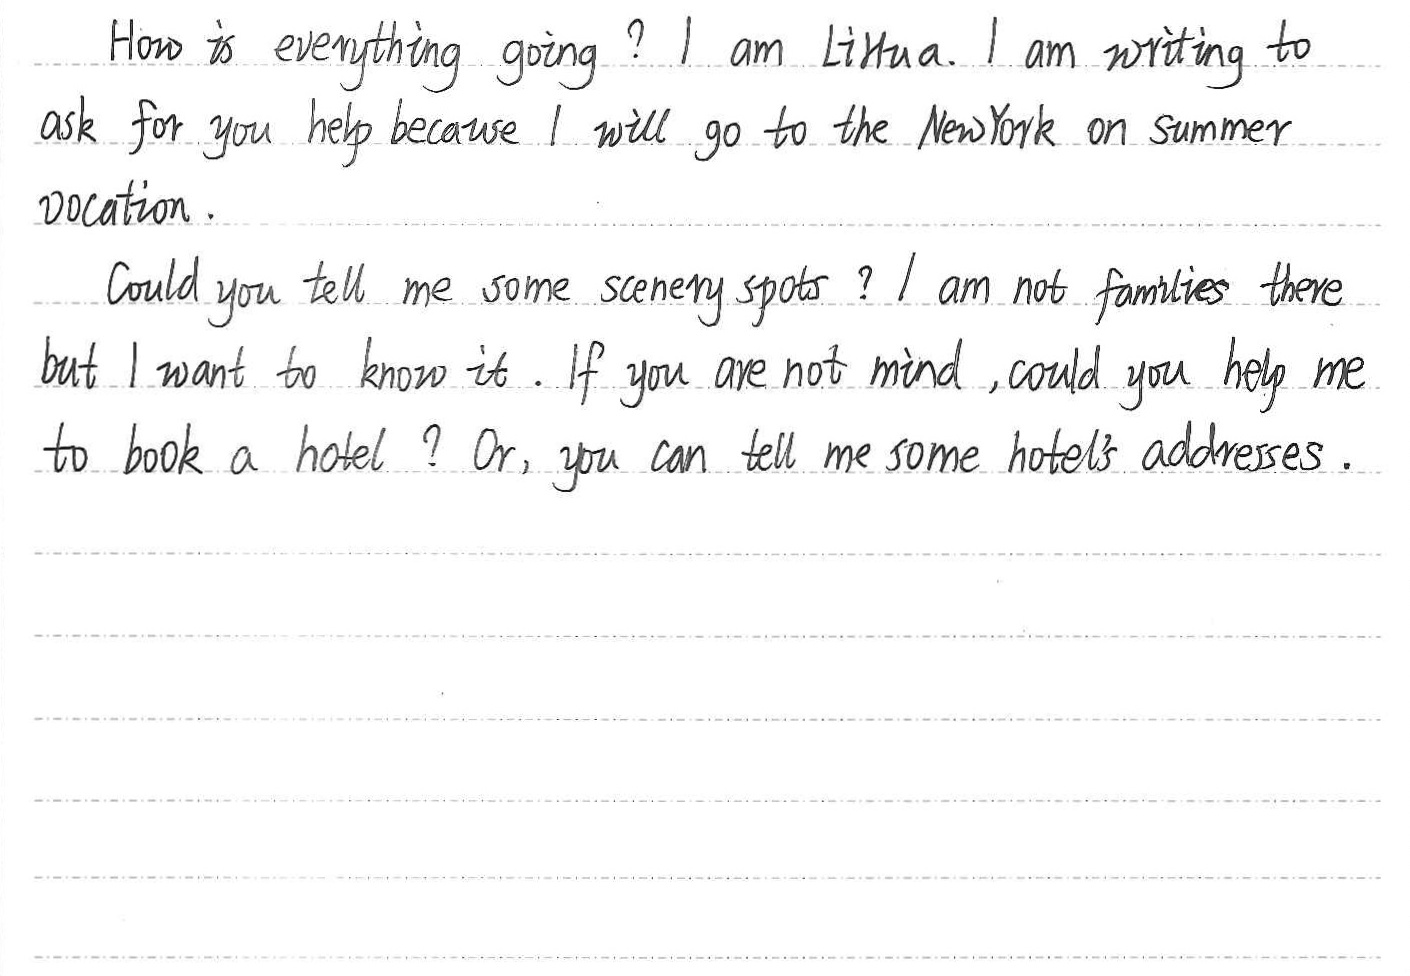 How is everything going ? I am LiHua. I am writing to
ask for you help because I will go to the NewYork on summer
vocation .
Could you tell me some scenery spots ? I am not families there
but I want to know it . If you are not mind , could you help me
to book a hotel ? Or, you can tell me some hotel's addresses .